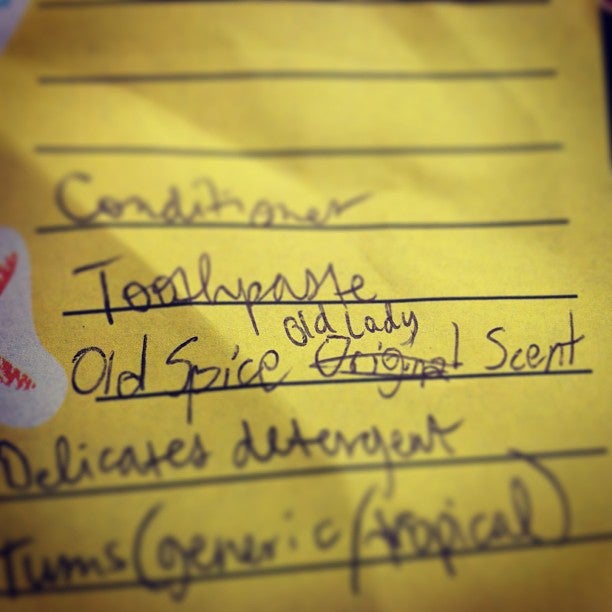 Conditioner
Toothpaste
Old Lady
Old Spice Original Scent
Delicates detergent
Tums (generic/tropical)